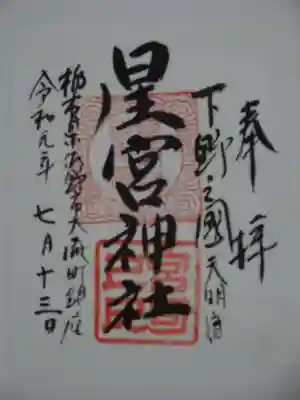 奉拝
下野之國天明宿
星宮神社
栃木県佐野市大蔵町鎮座
令和元年七月十三日